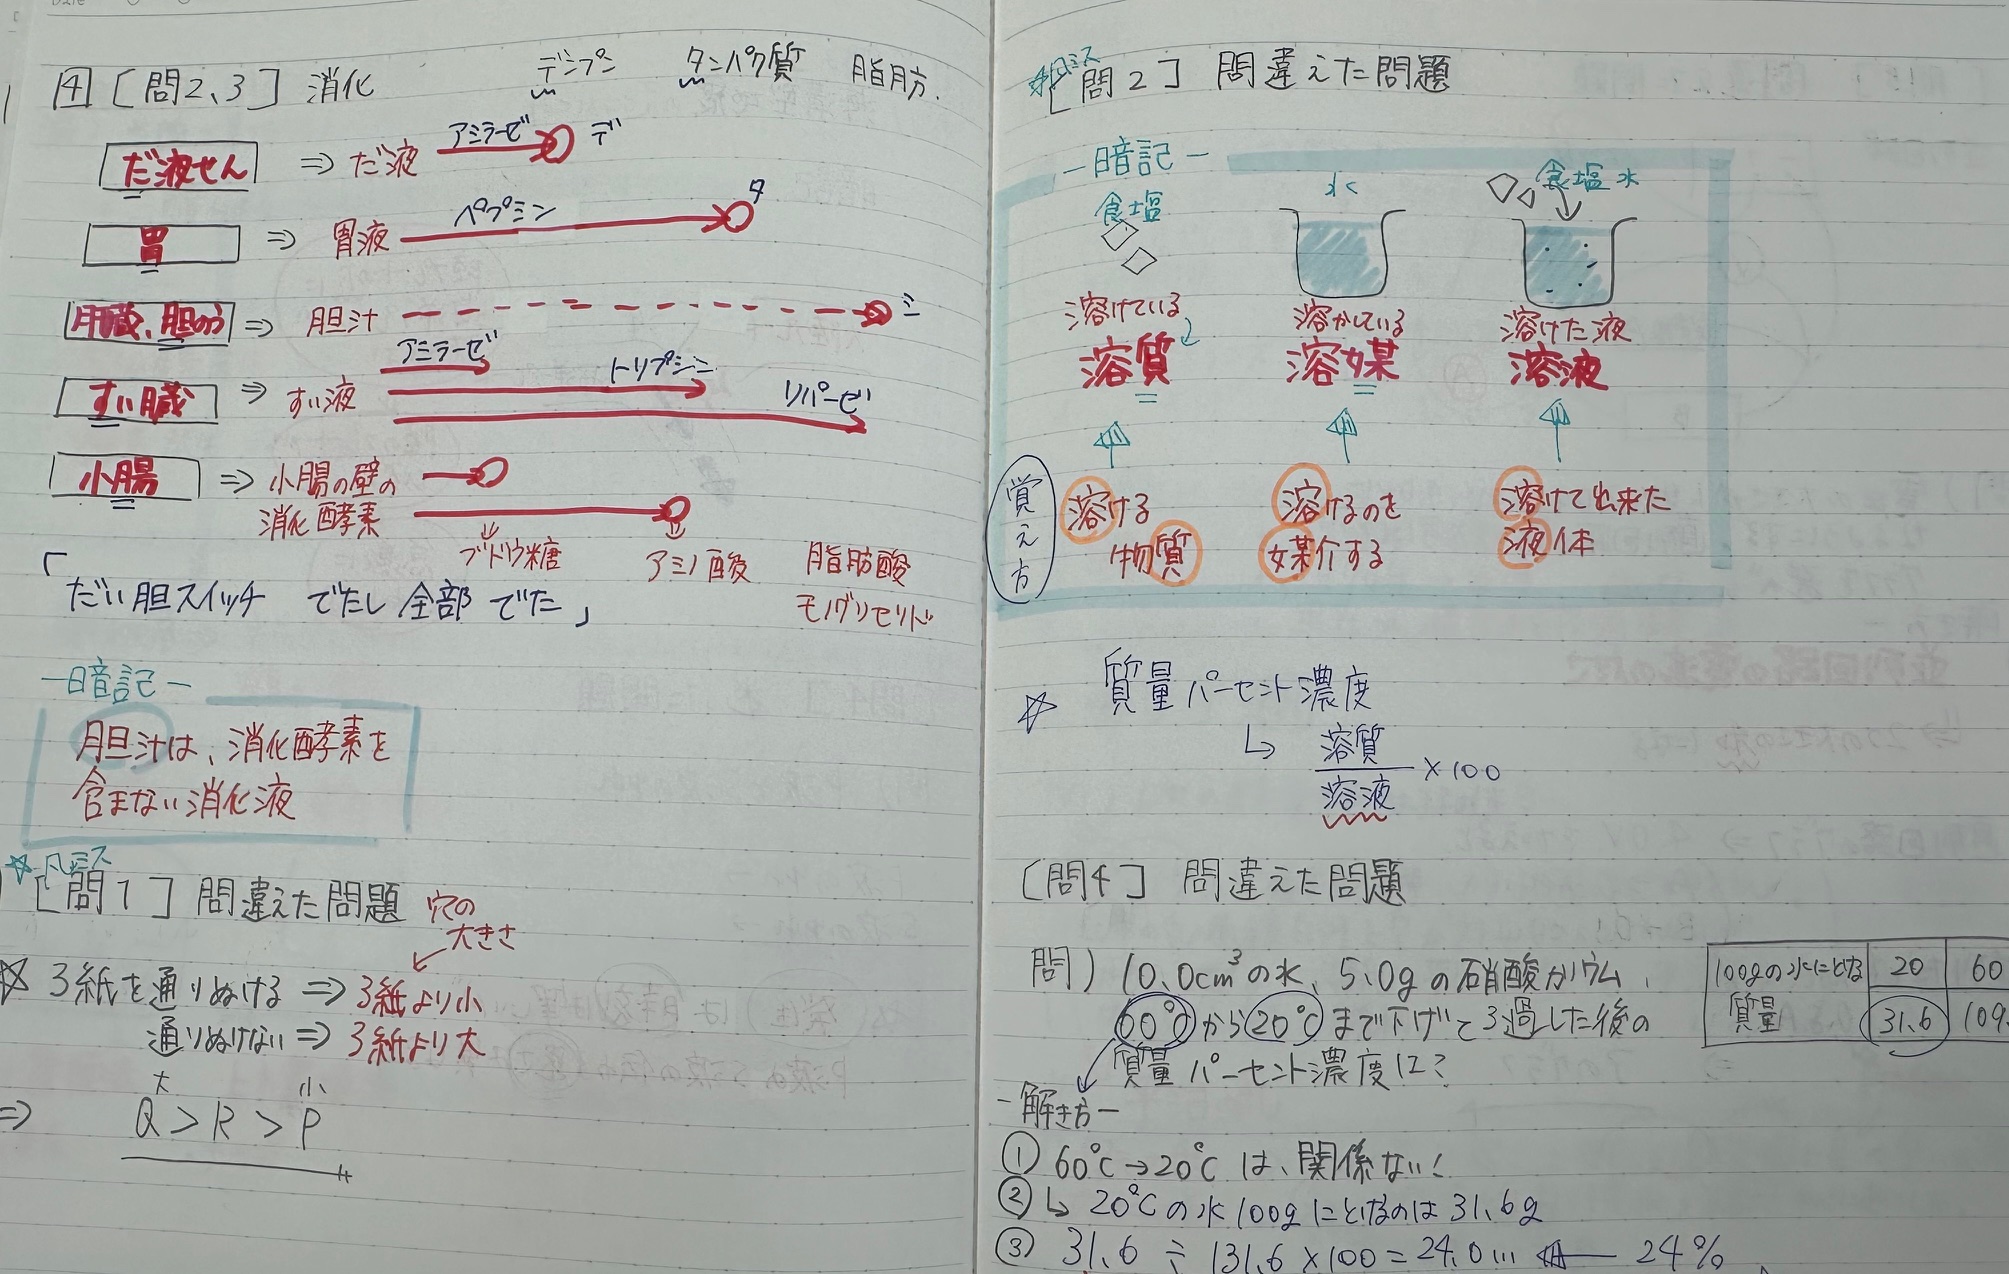 4 [問2、3] 消化
デンプン タンパク質 脂肪
だ液せん ⇒ だ液 アミラーゼ デ
胃 ⇒ 胃液 ペプシン タ
肝臓、胆のう ⇒ 胆汁 シ
すい臓 ⇒ すい液 アミラーゼ トリプシン リパーゼ
小腸 ⇒ 小腸の壁の
消化酵素
ブドウ糖 アミノ酸 脂肪酸
モノグリセリド
「だい胆スイッチ でたし 全部 でた」
-暗記-
胆汁は、消化酵素を
含まない消化液
☆凡ミス
[問1] 問違えた問題
穴の
大きさ
☆ ろ紙を通りぬける ⇒ ろ紙より小
通りぬけない ⇒ ろ紙より大
大 小
⇒ Q > R > P
凡ミス
[問2] 問違えた問題
-暗記-
食塩 水 食塩水
溶けている 溶かしている 溶けた液
溶質 溶媒 溶液
覚え方
溶ける 溶けるのを 溶けて出来た
物質 媒介する 液体
☆ 質量パーセント濃度
↳ 溶質
溶液
×100
[問4] 問違えた問題
問) 10.0cm³の水、5.0gの硝酸カリウム、
60℃から20℃まで下げてろ過した後の
質量パーセント濃度は?
100gの水にとける 20 60
質量 31.6 109.
-解き方-
① 60℃→20℃は、関係ない!
② ↳ 20℃の水100gにとけるのは31.6g
③ 31.6 ÷ 131.6 ×100 = 24.0… ← 24%